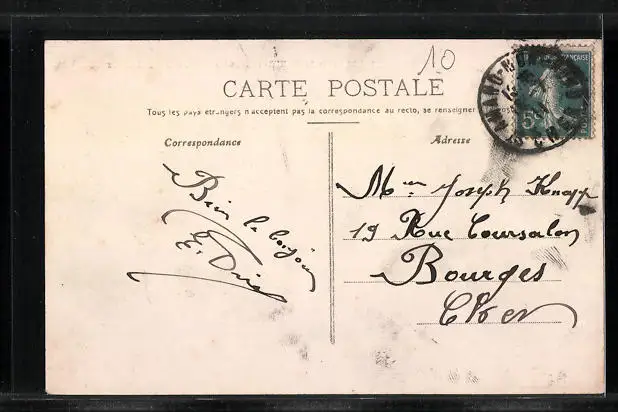 10
CARTE POSTALE
Tous les pays étrangers n'acceptent pas la correspondance au recto, se renseigner
Correspondance
Adresse
Bien le bonjour
E.
Mr Joseph Knapp
19 Rue Coursalon
Bourges
Cher
5c